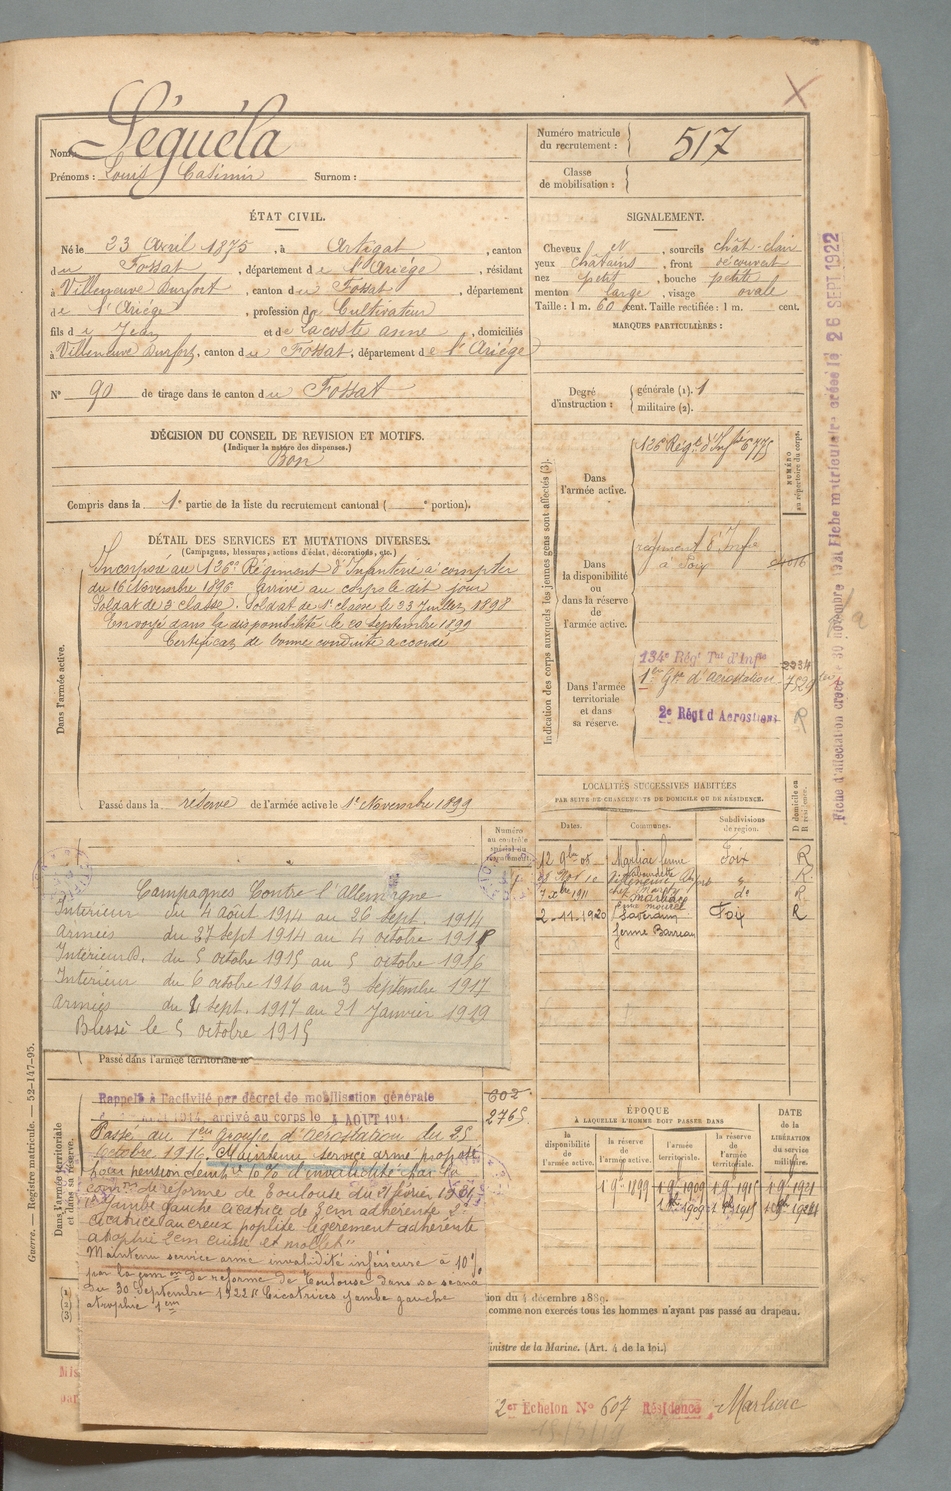 Nom : Séguéla
Prénoms : Louis Casimir Surnom :
Numéro matricule du recrutement : 517
Classe de mobilisation :
ÉTAT CIVIL.
Né le 23 Avril 1875, à Artigat, canton
du Fossat, département de l'Ariége, résidant
à Villeneuve Durfort, canton du Fossat, département
de l'Ariége, profession de Cultivateur
fils de Jean et de Lacoste anne, domiciliés
à Villeneuve Durfort, canton du Fossat, département de l'Ariége
N° 90 de tirage dans le canton du Fossat
SIGNALEMENT.
Cheveux et, sourcils chât-clair
yeux châtains, front découvert
nez petit, bouche petite
menton large, visage ovale
Taille : 1 m. 60 cent. Taille rectifiée : 1 m. cent.
MARQUES PARTICULIÈRES :
Degré d'instruction : générale (1). 1
militaire (2).
DÉCISION DU CONSEIL DE REVISION ET MOTIFS.
(Indiquer la nature des dispenses.)
Bon
Compris dans la 1e partie de la liste du recrutement cantonal ( e portion).
DÉTAIL DES SERVICES ET MUTATIONS DIVERSES.
(Campagnes, blessures, actions d'éclat, décorations, etc.)
Dans l'armée active.
Incorporé au 126e Régiment d'Infanterie à compter
du 16 Novembre 1896 arrivé au corps le dit jour
Soldat de 2 classe. Soldat de 1e classe le 23 Juillet 1898
Envoyé dans la disponibilité le 20 septembre 1899
Certificat de bonne conduite accordé
Passé dans la réserve de l'armée active le 1er Novembre 1899
Indication des corps auxquels les jeunes gens sont affectés (3).
NUMÉRO au répertoire du corps.
Dans l'armée active.
126 Régt d'Infie 6775
Dans la disponibilité ou dans la réserve de l'armée active.
régiment d'Infie
à Foix
Dans l'armée territoriale et dans sa réserve.
134e Régt Tal d'Infie
1er Gpe d'aérostation
2e Régt d'Aérostiers
R
Fiche d'affectation créée le 30 novembre 1921 Fiche matriculaire créée le 26 SEPT 1922
LOCALITÉS SUCCESSIVES HABITÉES
PAR SUITE DE CHANGEMENTS DE DOMICILE OU DE RÉSIDENCE.
Dates. Communes. Subdivisions de région. D domicile ou R résidence.
12 9bre 05 Marliac ferme Foix R
R
7 Xbre 1911 Marliac do R
2-11-1920 Saverdun Foix R
ferme Barreau
Numéro au contrôle spécial du recrutement
Campagnes Contre l'Allemagne
Intérieur du 4 Août 1914 au 26 sept. 1914
Armées du 27 sept 1914 au 4 octobre 1915
Intérieur B. du 5 octobre 1915 au 5 octobre 1916
Intérieur du 6 octobre 1916 au 3 Septembre 1917
Armées du 4 sept. 1917 au 21 Janvier 1919
Blessé le 5 octobre 1915
Passé dans l'armée territoriale le
602
2765
Dans l'armée territoriale et dans sa réserve.
Rappelé à l'activité par décret de mobilisation générale
1914, arrivé au corps le 4 AOUT 191
Passé au 1er Groupe d'aérostation du 25
Octobre 1916. Maintenu service armé proposé
pour pension
com on de réforme de Toulouse du
Jambe gauche cicatrice de 3cm adhérente 2°
cicatrice au creux poplité légèrement adhérente
atrophie 2cm cuisse et mollet"
Maintenu service armé invalidité inférieure à 10%
par la comon de réforme de Toulouse dans sa séance
du 30 Septembre 1922 1° Cicatrices jambe gauche
atrophie 1cm
ÉPOQUE
À LAQUELLE L'HOMME DOIT PASSER DANS
la disponibilité de l'armée active. la réserve de l'armée active. l'armée territoriale. la réserve de l'armée territoriale.
DATE de la LIBÉRATION du service militaire.
1 9bre 1899 1 9 1909 1 9 1915 1 9 1921
Guerre. — Registre matricule. — 52-147-95.
(1)
(2)
(3)
ion du 4 décembre 1889.
comme non exercés tous les hommes n'ayant pas passé au drapeau.
inistre de la Marine. (Art. 4 de la loi.)
2er Echelon N° 607 Résidence Marliac